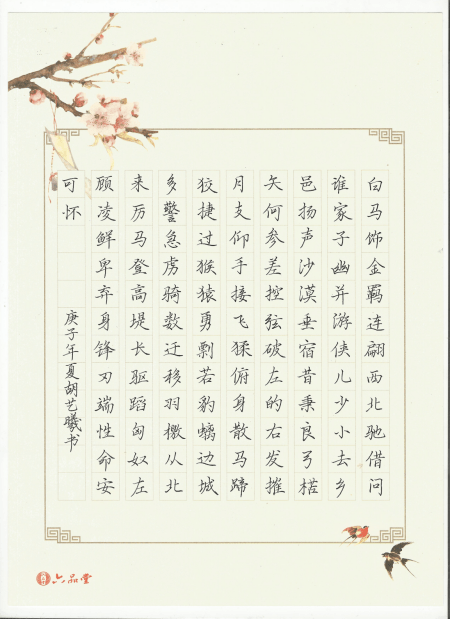 白马饰金羁连翩西北驰借问
谁家子幽并游侠儿少小去乡
邑扬声沙漠垂宿昔秉良弓楛
矢何参差控弦破左的右发摧
月支仰手接飞猱俯身散马蹄
狡捷过猴猿勇剽若豹螭边城
多警急虏骑数迁移羽檄从北
来厉马登高堤长驱蹈匈奴左
顾凌鲜卑弃身锋刃端性命安
可怀
庚子年夏胡艺曦书
六品堂